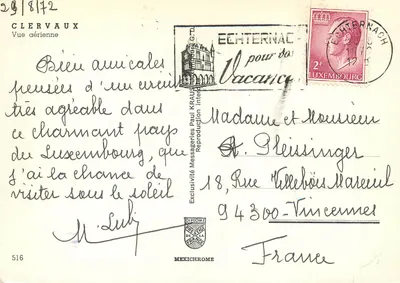 29/8/72
CLERVAUX
Vue aérienne
Bien amicales
pensées d'un circuit
très agréable dans
ce charmant pays
du Luxembourg, que
j'ai la chance de
visiter sous le soleil
516
ECHTERNAC
pour vos
Vacances
ECHTERNACH
2F
LUXEMBOURG
Exclusivité Messageries Paul KRAUS
Reproduction interdite
MEXICHROME
Madame et Monsieur
A. Pleissinger
18, Rue Villebois Mareuil
94300-Vincennes
France